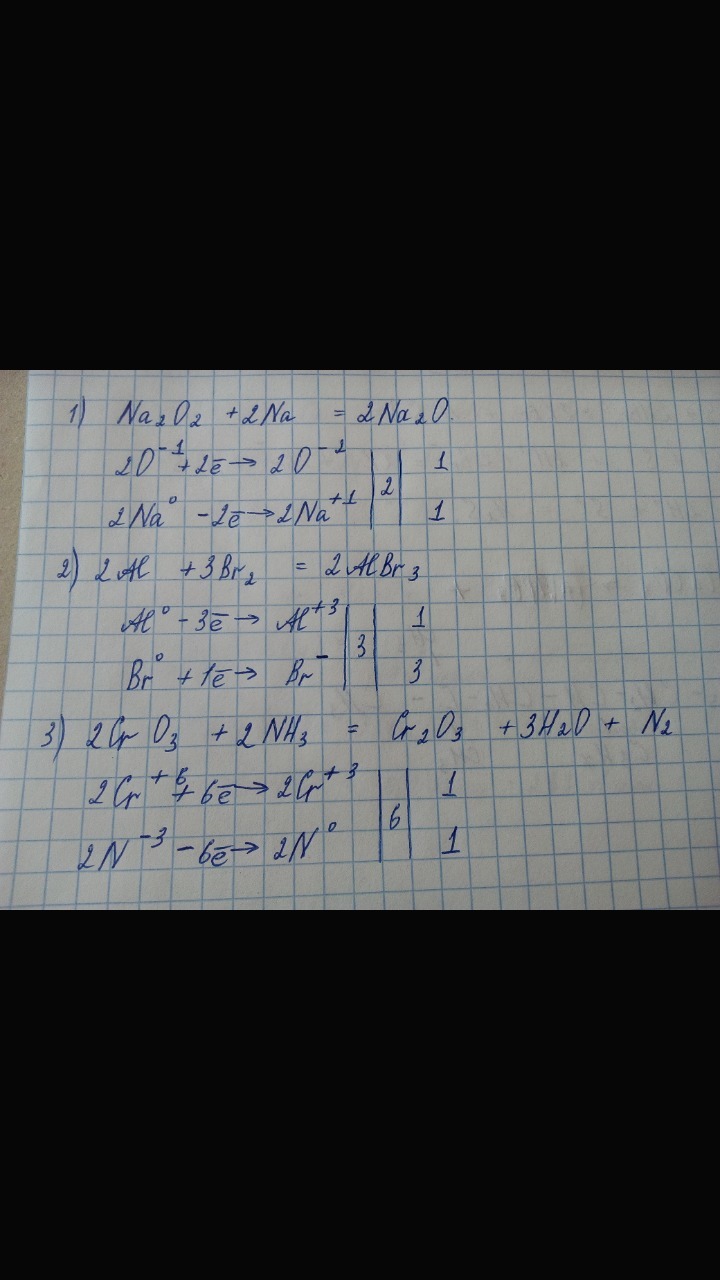 1) Na₂O₂ + 2Na = 2Na₂O.
2O⁻¹ + 2ē → 2O⁻² | 2 | 1
2Na⁰ - 2ē → 2Na⁺¹ 1
2) 2Al + 3Br₂ = 2AlBr₃
Al⁰ - 3ē → Al⁺³ | 3 | 1
Br⁰ + 1ē → Br⁻ 3
3) 2CrO₃ + 2NH₃ = Cr₂O₃ + 3H₂O + N₂
2Cr⁺⁶ + 6ē → 2Cr⁺³ | 6 | 1
2N⁻³ - 6ē → 2N⁰ 1